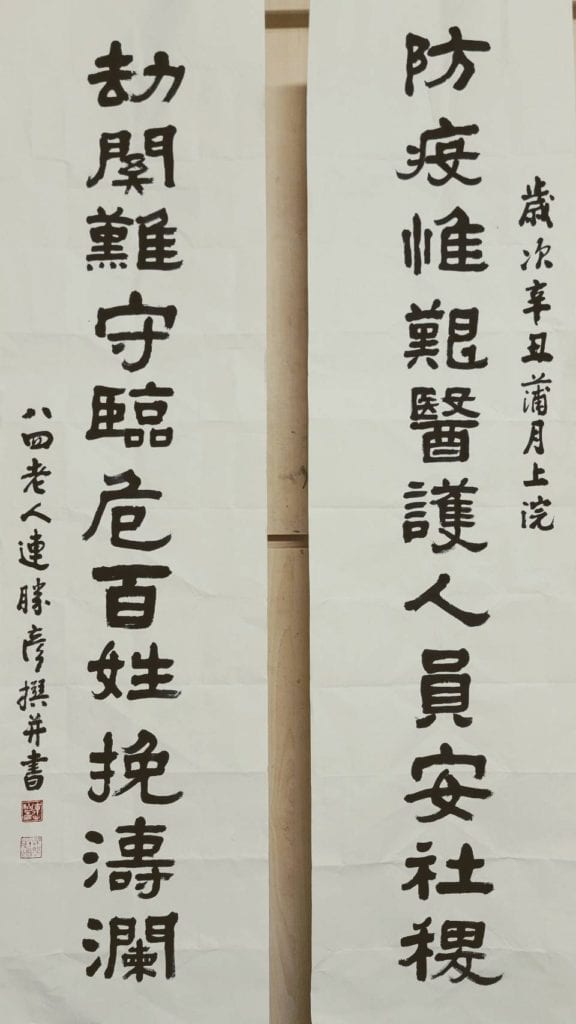 歲次辛丑蒲月上浣
防疫惟艱醫護人員安社稷
劫関難守臨危百姓挽濤瀾
八四老人連勝彥撰并書